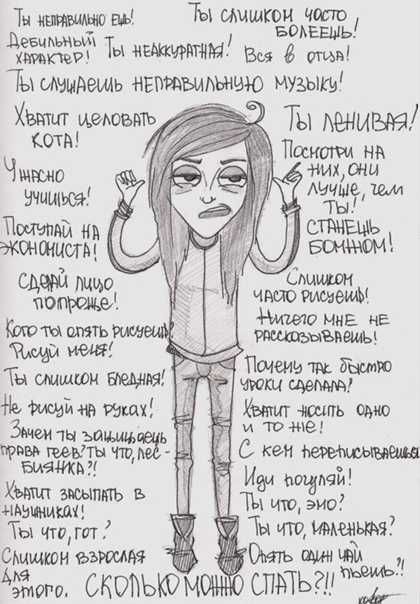 Ты неправильно ешь!
Ты слишком часто
болеешь!
Дебильный
характер!
Ты неаккуратная!
Вся в отца!
Ты слушаешь неправильную музыку!
Хватит целовать
кота!
Ты ленивая!
Ужасно
учишься!
Посмотри на
них, они
лучше, чем
ты!
Поступай на
экономиста!
Станешь
бомжом!
Сделай лицо
попроще!
Слишком
часто рисуешь!
Кого ты опять рисуешь?
Рисуй меня!
Ничего мне не
рассказываешь!
Ты слишком бледная!
Почему так быстро
уроки сделала?
Не рисуй на руках!
Хватит носить одно
и то же!
Зачем ты защищаешь
права геев? Ты что, лес-
биянка?!
С кем переписываешься
Хватит засыпать в
наушниках!
Иди погуляй!
Ты что, эмо?
Ты что, гот?
Ты что, маленькая?
Слишком взрослая
для
этого.
Опять один чай
пьешь?!
Сколько можно спать?!!